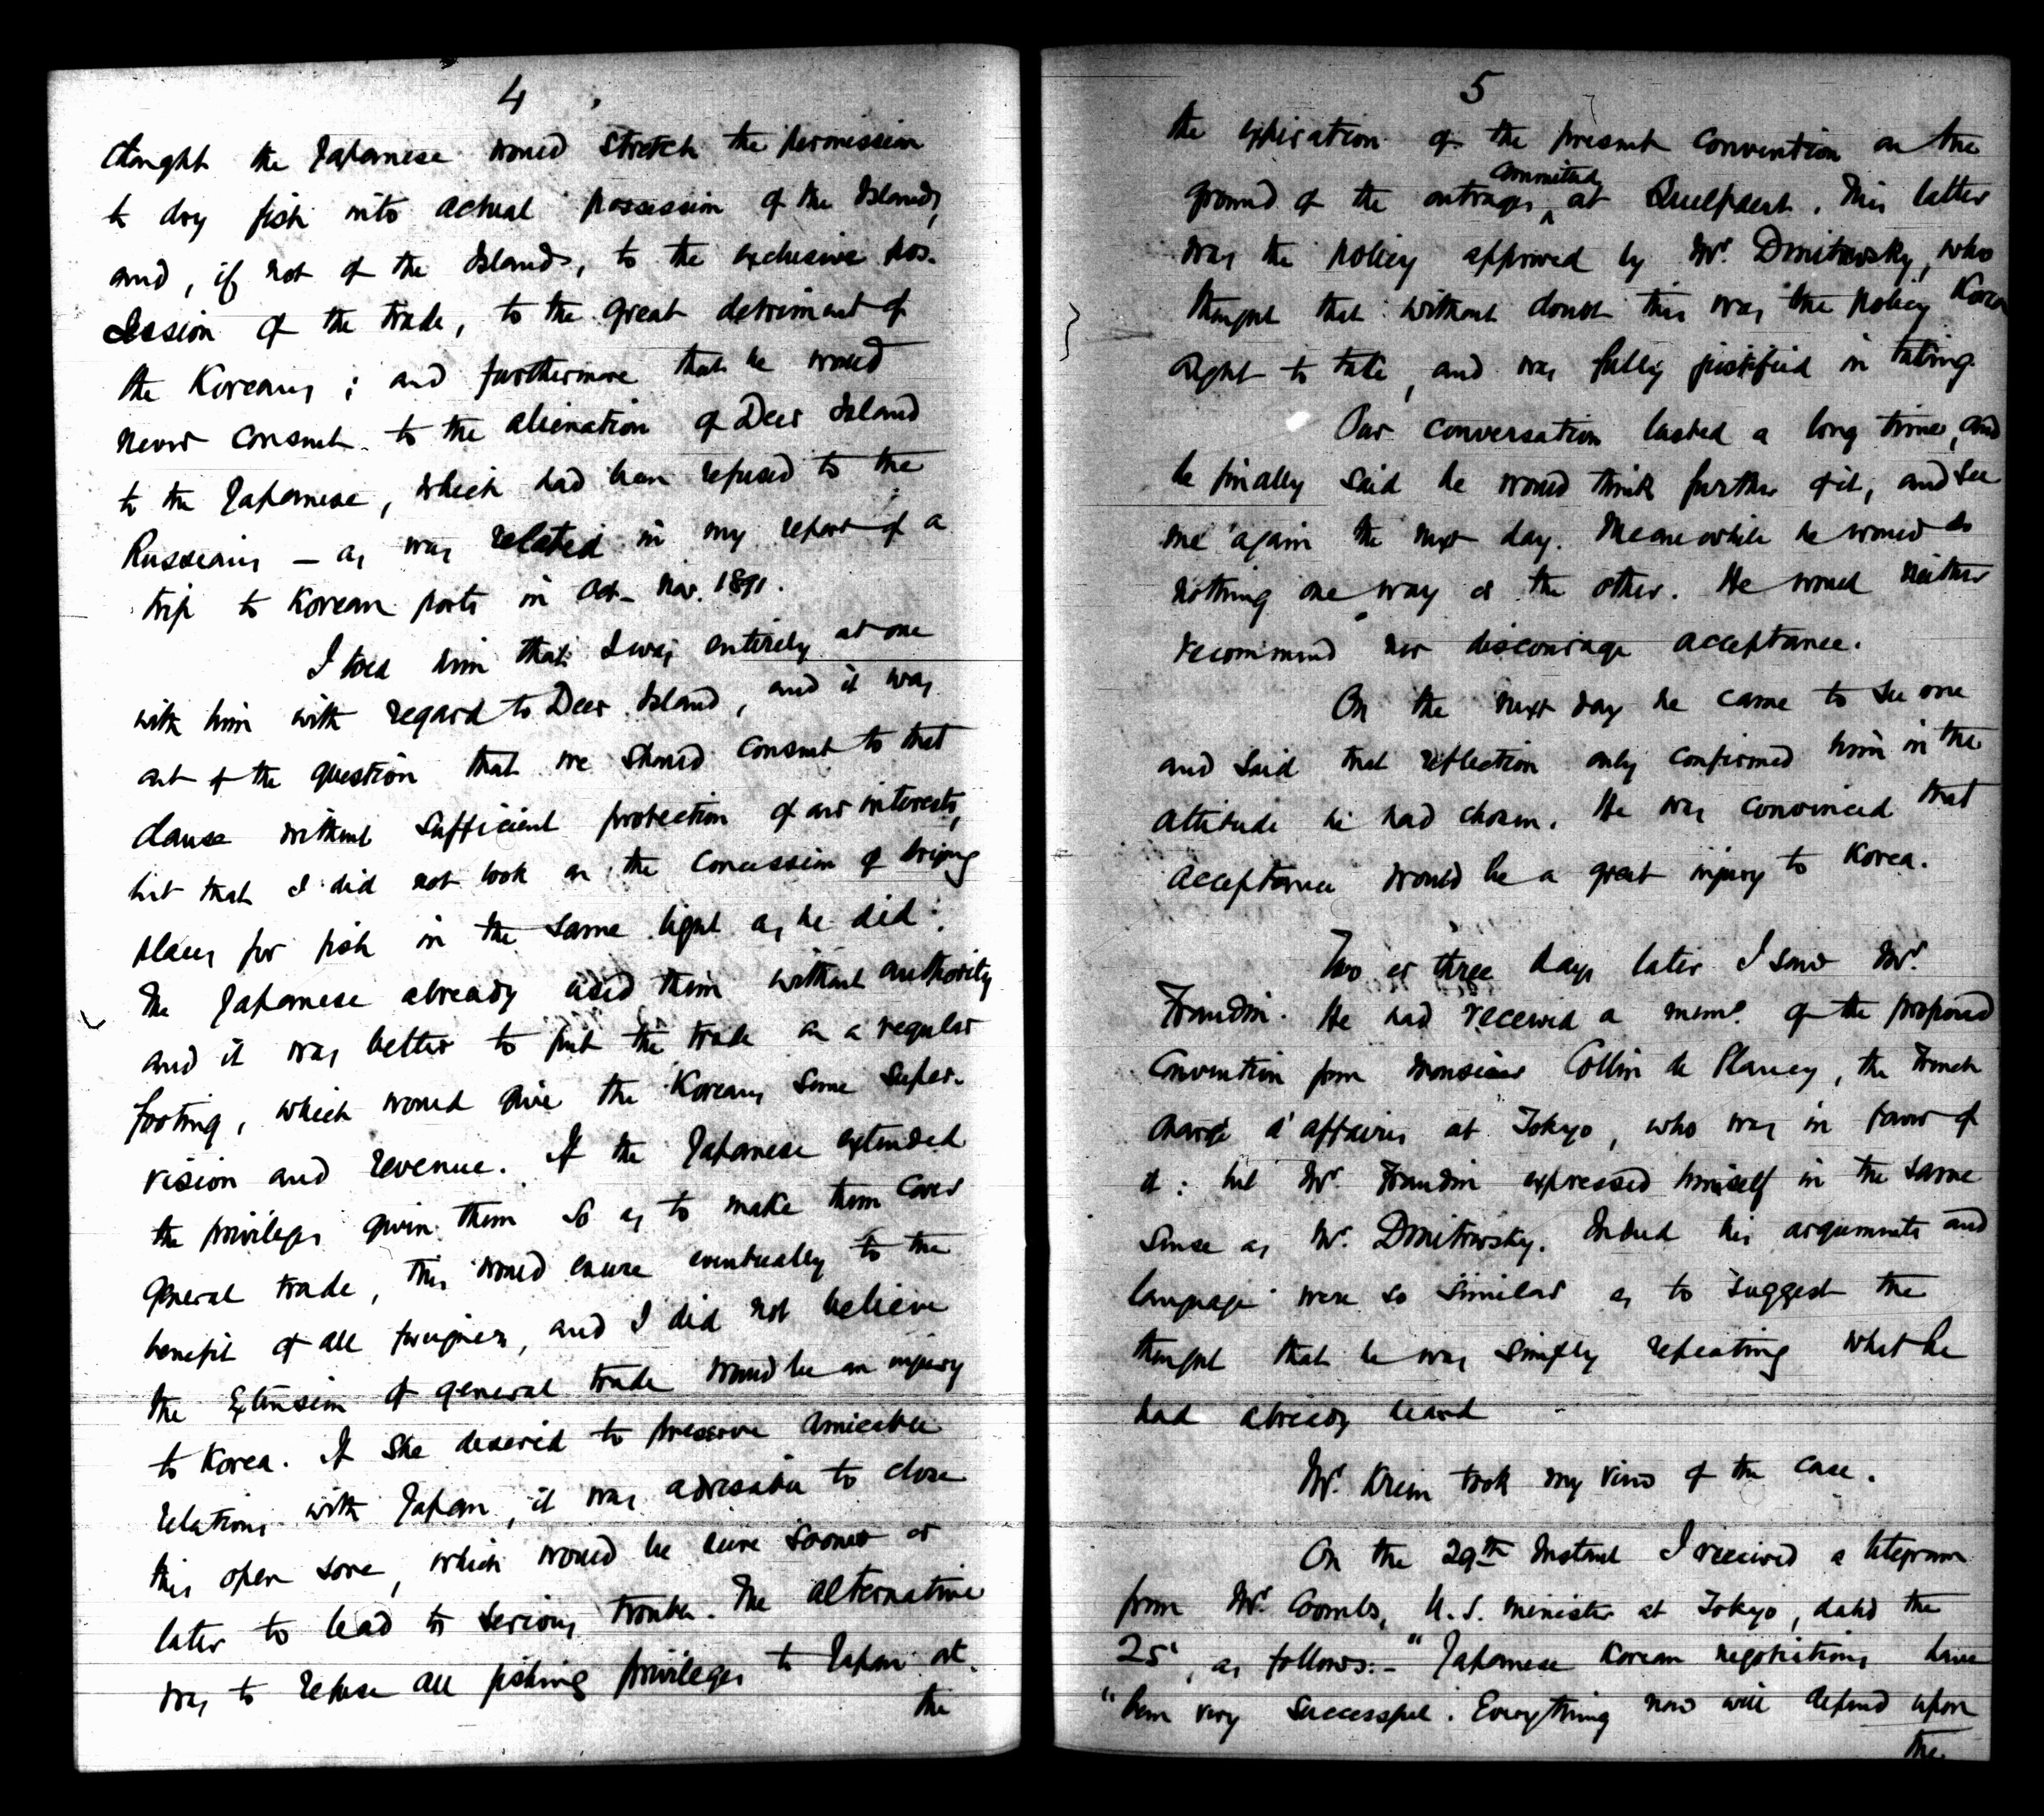 4
thought the Japanese would stretch the permission
to dry fish into actual possession of the Islands,
and, if not of the Islands, to the exclusive pos-
session of the trade, to the great detriment of
the Koreans; and furthermore that he would
never consent to the alienation of Deer Island
to the Japanese, which had been refused to the
Russians – as was related in my report of a
trip to Korean ports in Oct - Nov. 1891.
I told him that I was entirely at one
with him with regard to Deer Island, and it was
out of the question that we should consent to that
clause without sufficient protection of our interests,
but that I did not look on the concession of drying
places for fish in the same light as he did.
The Japanese already used them without authority
and it was better to put the trade on a regular
footing, which would give the Koreans some super-
vision and revenue. If the Japanese extended
the privileges given them so as to make them cover
general trade, this would enure eventually to the
benefit of all foreigners, and I did not believe
the extension of general trade would be an injury
to Korea. If she desired to preserve amicable
relations with Japan, it was advisable to close
this open sore, which would be sure sooner or
later to lead to serious trouble. The alternative
was to refuse all fishing privileges to Japan at
the
5
the expiration of the present convention on the
ground of the outrages committed at Quelpaert. This latter
was the policy approved by Mr. Dmitrevsky, who
thought that without doubt this was the policy Korea
ought to take, and was fully justified in taking.
Our conversation lasted a long time, and
he finally said he would think further of it, and see
me again the next day. Meanwhile he would do
nothing one way or the other. He would neither
recommend nor discourage acceptance.
On the next day he came to see me
and said that reflection only confirmed him in the
attitude he had chosen. He was convinced that
acceptance would be a great injury to Korea.
Two or three days later I saw Mr.
Frandin. He had received a memo. of the proposed
Convention from Monsieur Collin de Plancy, the French
chargé d'affaires at Tokyo, who was in favor of
it: but Mr. Frandin expressed himself in the same
sense as Mr. Dmitrevsky. Indeed his arguments and
language were so similar as to suggest the
thought that he was simply repeating what he
had already heard
Mr. Krien took my view of the case.
On the 29th instant I received a telegram
from Mr. Coombs, U.S. Minister at Tokyo, dated the
25', as follows:- "Japanese Korean negotiations have
"been very successful. Everything now will depend upon
the